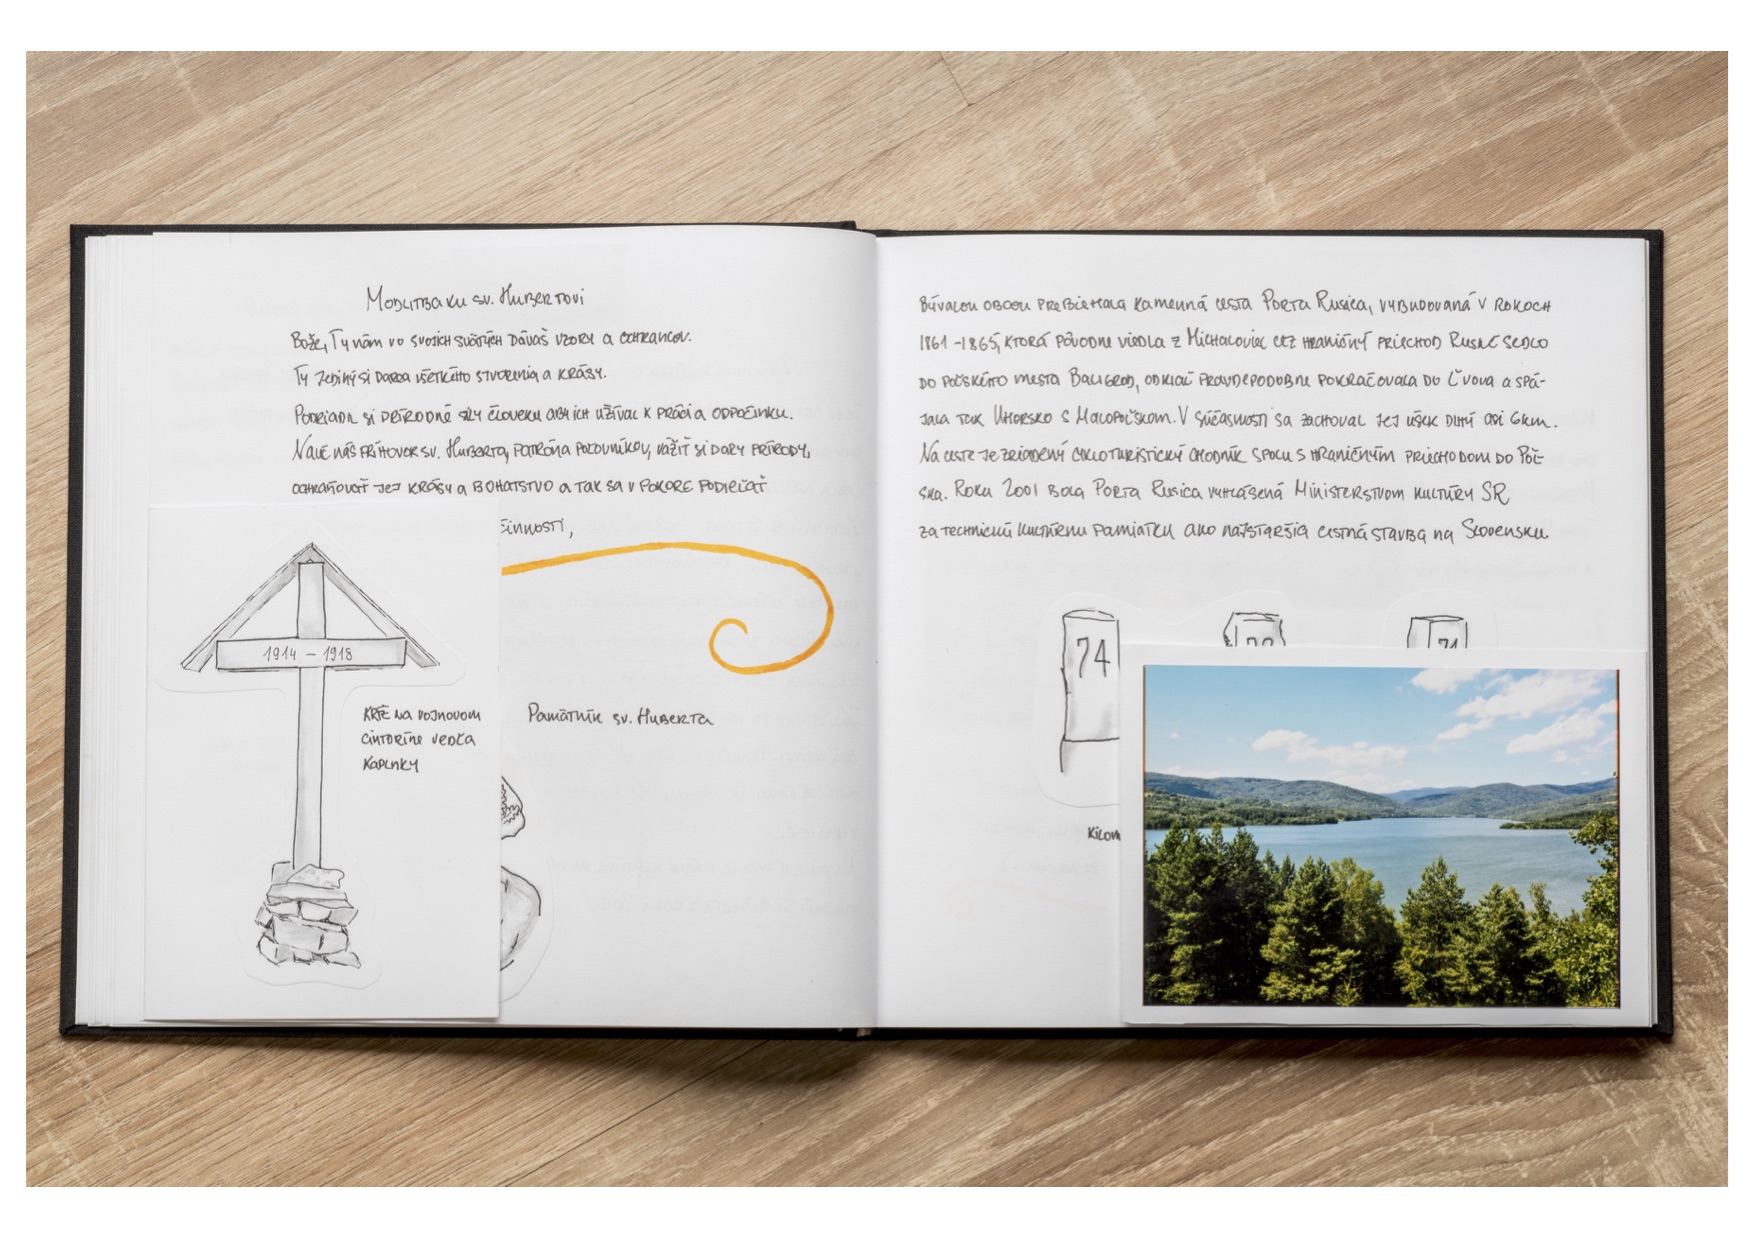 Modlitba ku sv. Hubertovi
Bože, Ty nám vo svojich svätých dávaš vzory a ochrancov.
Ty jediný si darca všetkého stvorenia a krásy.
Podriadil si prírodné sily človeku aby ich užíval k práci a odpočinku.
Nauč nás príhovor sv. Huberta, patróna poľovníkov, vážiť si dary prírody,
ochraňovať jej krásy a bohatstvo a tak sa v pokore podieľať
činnosti,
1914 – 1918
Kríž na vojnovom
cintoríne vedľa
kaplnky
Pamätník sv. Huberta
Bývalou obcou prebiehala kamenná cesta Porta Rusica, vybudovaná v rokoch
1861 – 1865, ktorá pôvodne viedla z Michaloviec cez hraničný priechod Ruské sedlo
do poľského mesta Baligrod, odkiaľ pravdepodobne pokračovala do Ľvova a spá-
jala tak Uhorsko s Malopoľskom. V súčasnosti sa zachoval jej úsek dlhý asi 6km.
Na ceste je zriadený cykloturistický chodník spolu s hraničným priechodom do Poľ-
ska. Roku 2001 bola Porta Rusica vyhlásená Ministerstvom kultúry SR
za technickú kultúrnu pamiatku ako najstaršia cestná stavba na Slovensku.
74
71
Kilom